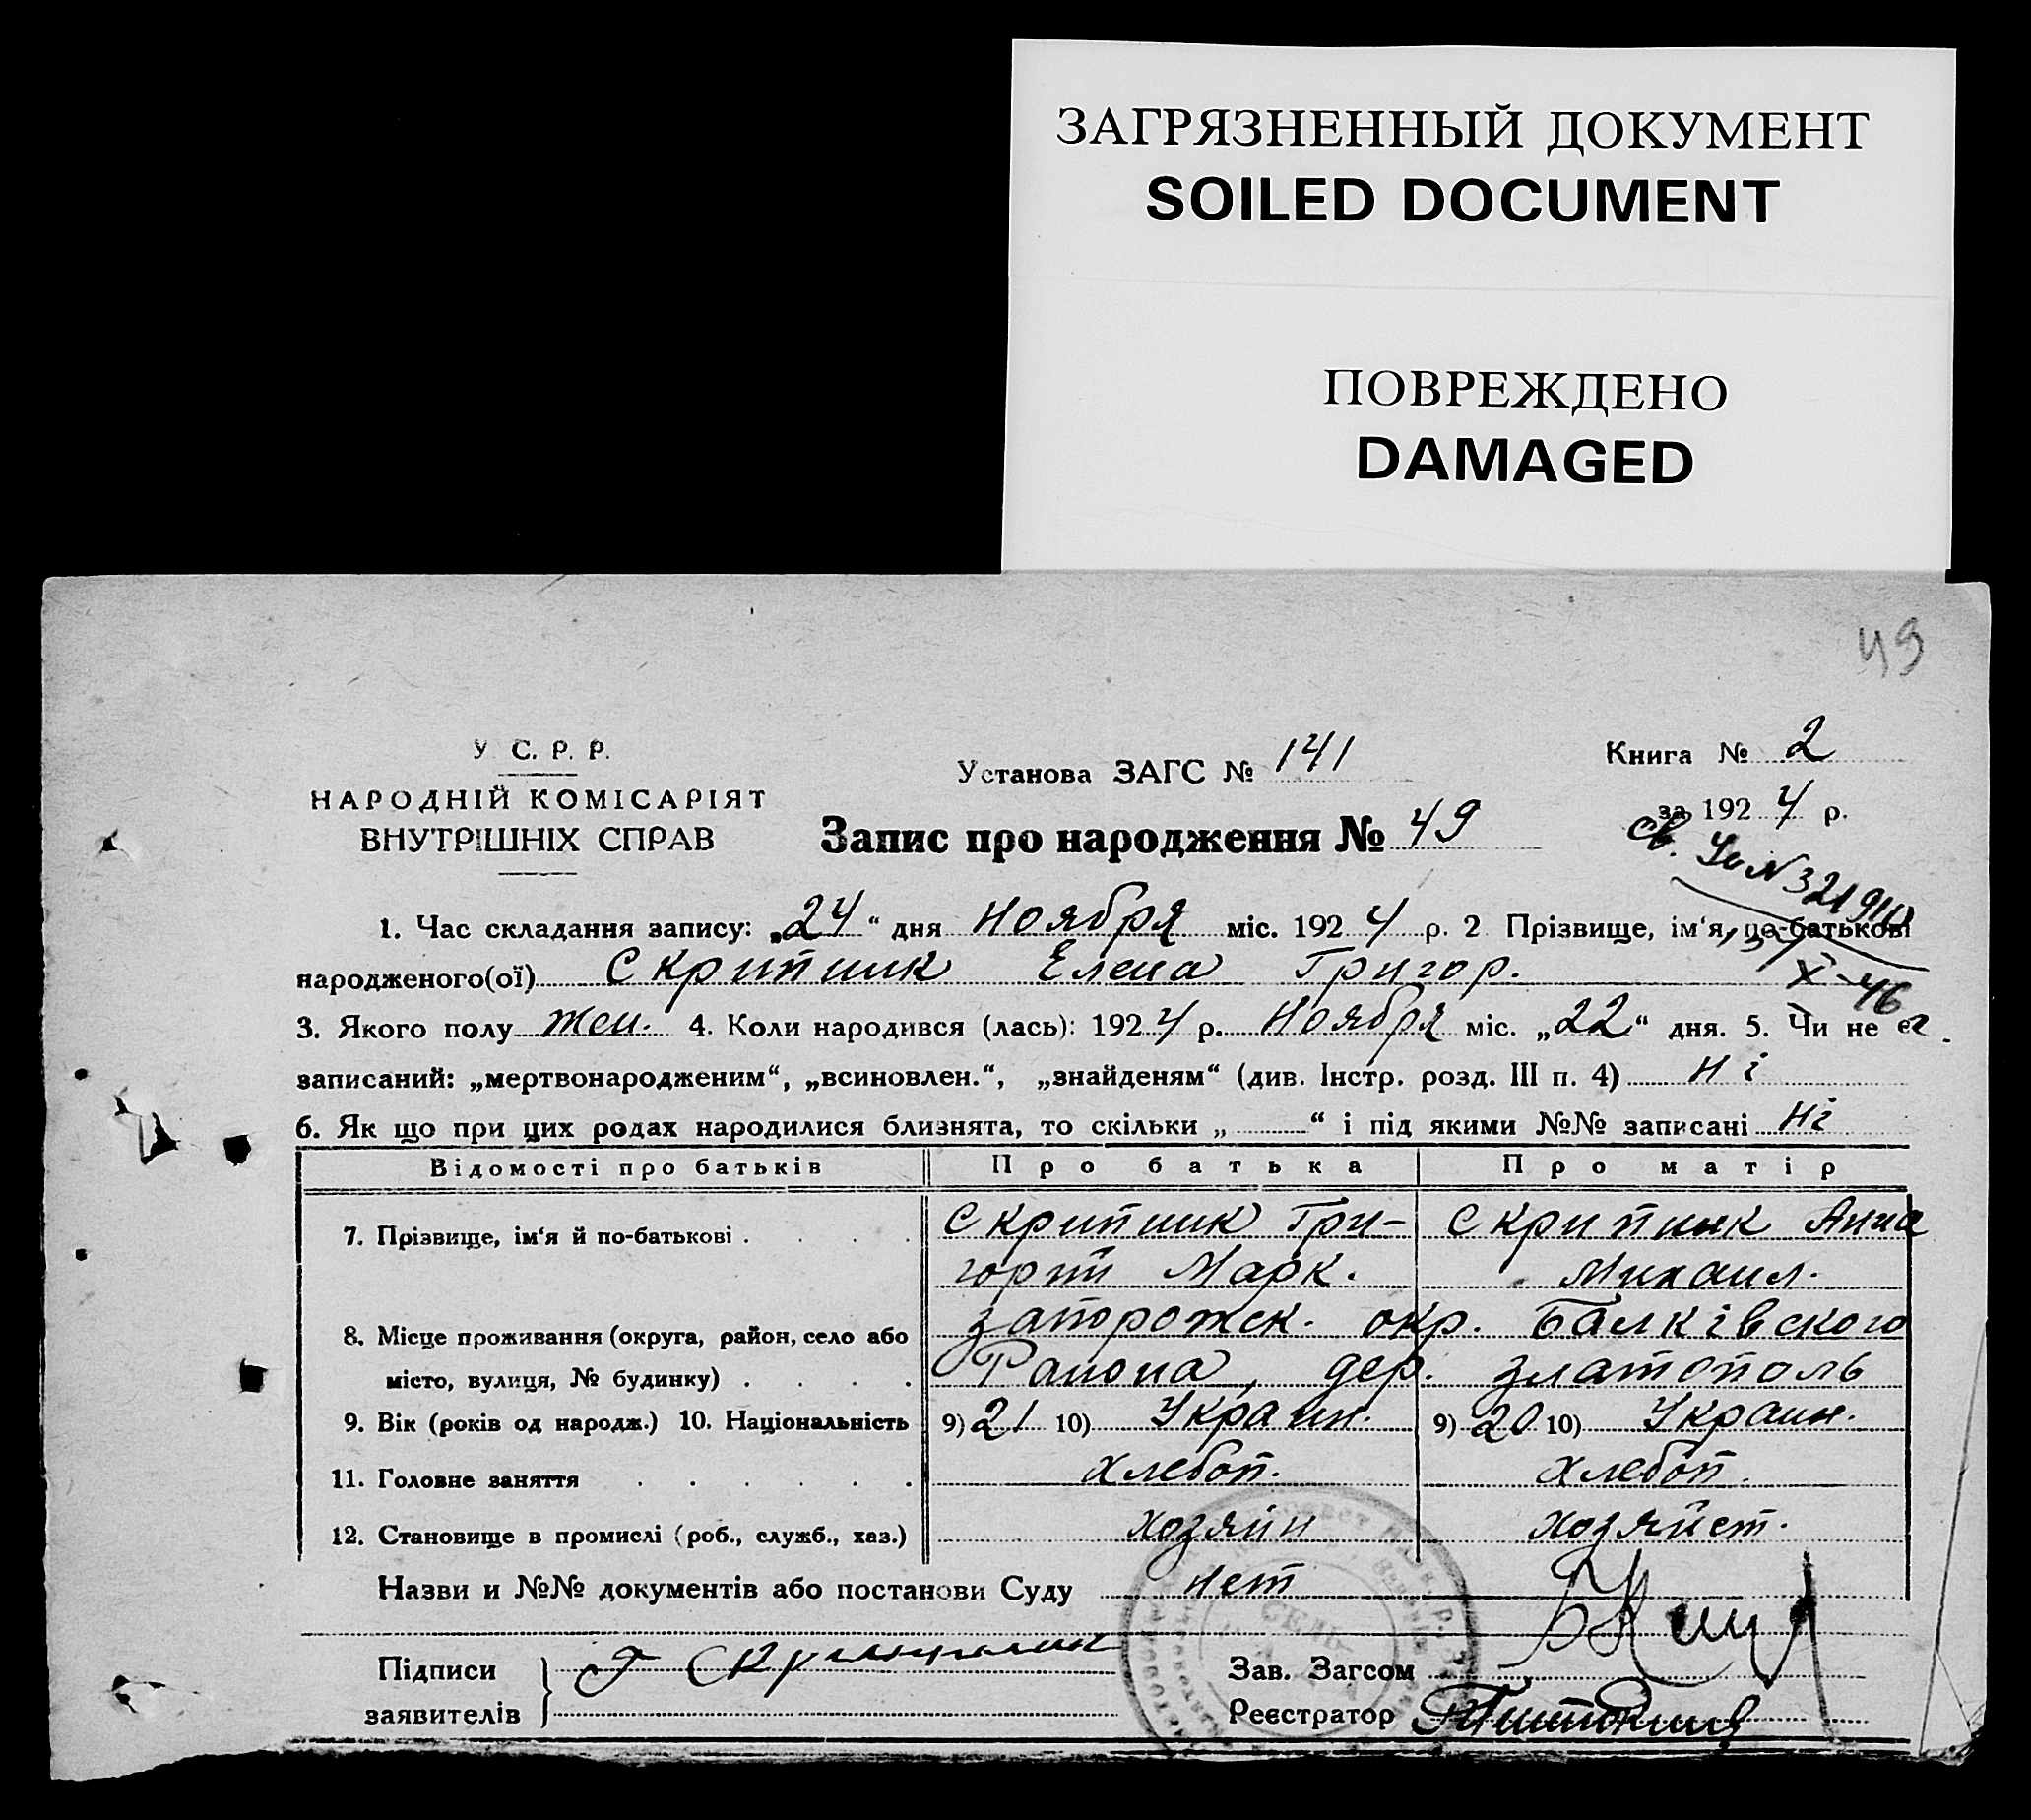 ЗАГРЯЗНЕННЫЙ ДОКУМЕНТ
SOILED DOCUMENT
ПОВРЕЖДЕНО
DAMAGED
49
У С. Р. Р.
НАРОДНІЙ КОМІСАРІЯТ
ВНУТРІШНІХ СПРАВ
Установа ЗАГС № 141
Книга № 2
за 1924 р.
Запис про народження № 49
св. N 321910
X-46
1. Час складання запису: „24“ дня Ноября міс. 1924 р. 2 Прізвище, ім‘я, по-батькові
народженого(ої) Скрипник Елена Григор.
3. Якого полу жен. 4. Коли народився (лась): 1924 р. Ноября міс. „22“ дня. 5. Чи не є
записаний: „мертвонародженим“, „всиновлен.“, „знайденям“ (див. Інстр. розд. III п. 4) ні
6. Як що при цих родах народилися близнята, то скільки „ “ і під якими №№ записані ні
Відомості про батьків Про батька Про матір
7. Прізвище, ім‘я й по-батькові . . . . Скрипник Гри- Скрипник Анна
горий Марк. Михаил.
8. Місце проживання (округа, район, село або запорожск. окр. Балківского
місто, вулиця, № будинку) . . . . Района, дер. златополь
9. Вік (років од народж.) 10. Національність 9) 21 10) Украин. 9) 20 10) Украин.
11. Головне заняття . . . . . . хлебоп. хлебоп.
12. Становище в промислі (роб., служб., хаз.) хозяин хозяйст.
Назви и №№ документів або постанови Суду нет
Підписи
заявителів
Зав. Загсом
Реєстратор